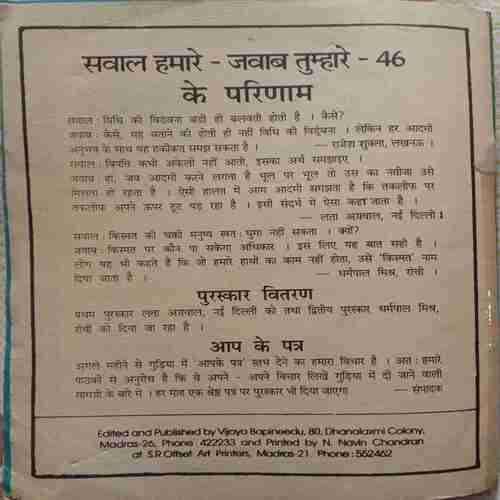 सवाल हमारे - जवाब तुम्हारे - 46
के परिणाम
सवाल : विधि की विडंबना बड़ी ही बलवती होती है । कैसे?
जवाब : कैसे, यह बताने की होती ही नहीं विधि की विडंबना । लेकिन हर आदमी
अनुभव के साथ यह हकीकत समझ सकता है । — राजेश शुक्ला, लखनऊ ।
सवाल : विपत्ति कभी अकेली नहीं आती, इसका अर्थ समझाइए ।
जवाब : हां, जब आदमी करने लगता है भूल पर भूल तो उस का नतीजा उसे
मिलता ही रहता है । ऐसी हालत में आम आदमी समझता है कि तकलीफ पर
तकलीफ अपने ऊपर टूट पड़ रहा है । इसी संदर्भ में ऐसा कहा जाता है ।
— लता अग्रवाल, नई दिल्ली ।
सवाल : किस्मत की चक्की मनुष्य स्वतः घुमा नहीं सकता । क्यों?
जवाब : किस्मत पर कौन पा सकेगा अधिकार । इस लिए यह बात सही है ।
लोग यह भी कहते है कि जो हमारे हाथों का काम नहीं होता, उसे 'किस्मत' नाम
दिया जाता है । — धर्मपाल मिश्र, रांची ।
पुरस्कार वितरण
प्रथम पुरस्कार लता अग्रवाल, नई दिल्ली को तथा द्वितीय पुरस्कार धर्मपाल मिश्र,
रांची को दिया जा रहा है ।
आप के पत्र
अगले महीने से गुड़िया में 'आपके पत्र' स्तंभ देने का हमारा विचार है । अतः हमारे
पाठकों से अनुरोध है कि वे अपने - अपने विचार लिखें गुड़िया में दी जाने वाली
सामग्री के बारे में । हर माह एक श्रेष्ठ पत्र पर पुरस्कार भी दिया जाएगा — संपादक
Edited and Published by Vijaya Bapineedu, 80, Dhanalaxmi Colony,
Madras-26, Phone 422233 and Printed by N. Navin Chandran
at S.R.Offset Art Printers, Madras-21. Phone : 552462